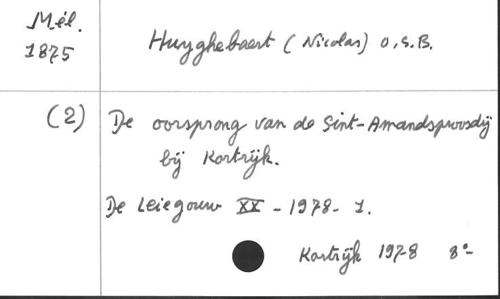 Mél.
1875
Huyghebaert (Nicolas) O.S.B.
(2) De oorsprong van de Sint-Amandsproosdij
bij Kortrijk.
De Leiegouw XX - 1978 - 1.
Kortrijk 1978 8°-